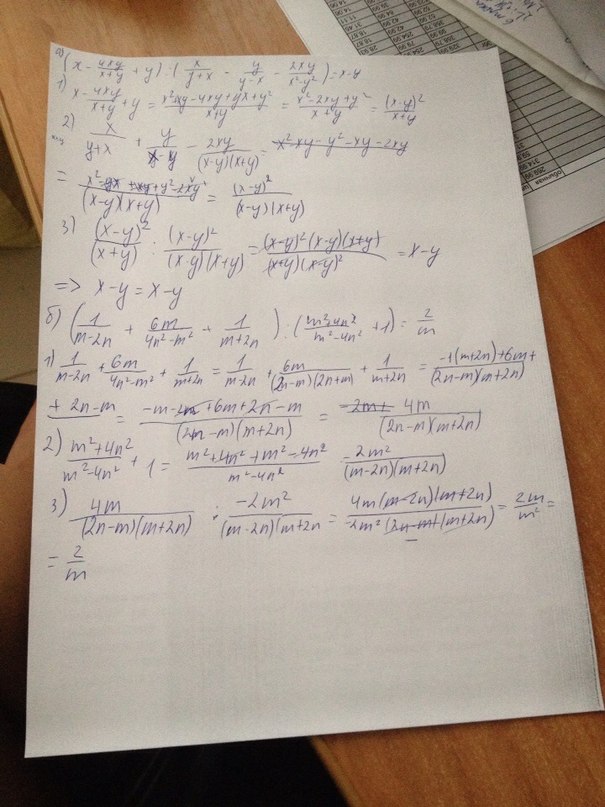 а) (x - 4xy/(x+y) + y) : (x/(y+x) - y/(y-x) - 2xy/(x²-y²)) = x-y
1) x - 4xy/(x+y) + y = (x²+xy-4xy+yx+y²)/(x+y) = (x²-2xy+y²)/(x+y) = (x-y)²/(x+y)
2) x/(y+x) + y/(x-y) - 2xy/((x-y)(x+y)) = x²-xy-y²-xy-2xy
= (x²-yx+xy+y²-2xy)/((x-y)(x+y)) = (x-y)²/((x-y)(x+y))
3) (x-y)²/(x+y) : (x-y)²/((x-y)(x+y)) = (x-y)²(x-y)(x+y)/((x+y)(x-y)²) = x-y
=> x-y = x-y
б) (1/(m-2n) + 6m/(4n²-m²) + 1/(m+2n)) : ((m²+4n²)/(m²-4n²) + 1) = 2/m
1) 1/(m-2n) + 6m/(4n²-m²) + 1/(m+2n) = 1/(m-2n) + 6m/((2n-m)(2n+m)) + 1/(m+2n) = (-1(m+2n)+6m+/((2n-m)(m+2n))
+2n-m = (-m-2n+6m+2n-m)/((2n-m)(m+2n)) = -2m+ 4m/((2n-m)(m+2n))
2) (m²+4n²)/(m²-4n²) + 1 = (m²+4n²+m²-4n²)/(m²-4n²) = 2m²/((m-2n)(m+2n))
3) 4m/((2n-m)(m+2n)) : -2m²/((m-2n)(m+2n) = 4m(m-2n)(m+2n)/(-2m²(2n-m)(m+2n)) = 2m/m² =
= 2/m